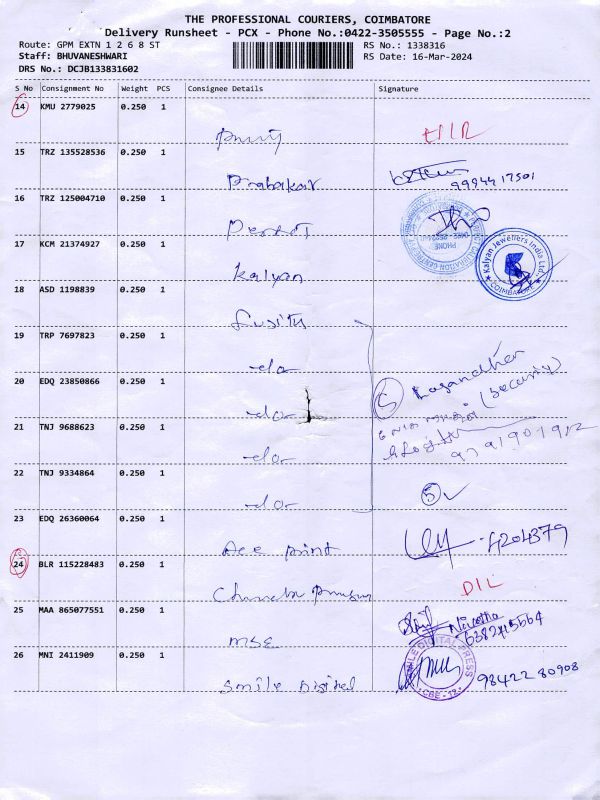 THE PROFESSIONAL COURIERS, COIMBATORE
Delivery Runsheet - PCX - Phone No.:0422-3505555 - Page No.:2
Route: GPM EXTN 1 2 6 8 ST
RS No.: 1338316
Staff: BHUVANESHWARI
RS Date: 16-Mar-2024
DRS No.: DCJB133831602
S No Consignment No Weight PCS Consignee Details Signature
14 KMU 2779025 0.250 1
15 TRZ 135528536 0.250 1
Prabakar
9994417501
16 TRZ 125004710 0.250 1
17 KCM 21374927 0.250 1
PHONE
Kalyan Jewellers India Ltd.
COIMBATORE
kalyan
18 ASD 1198839 0.250 1
19 TRP 7697823 0.250 1
-do-
20 EDQ 23850866 0.250 1
-do-
5
(Security)
21 TNJ 9688623 0.250 1
-do-
22 TNJ 9334864 0.250 1
-do-
5
23 EDQ 26360064 0.250 1
Ace print
4204379
24 BLR 115228483 0.250 1
DIL
25 MAA 865077551 0.250 1
MSE
26 MNI 2411909 0.250 1
SMILE DIGITAL PRESS
CBE - 12
Smile Digital
98422 80908